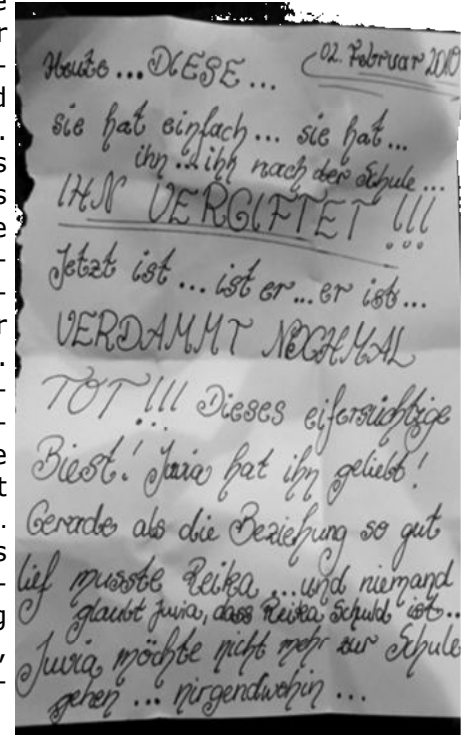 02. Februar 2010
Heute ... DIESE ...
sie hat einfach ... sie hat ...
ihn ... ihn nach der Schule ...
IHN VERGIFTET !!!
Jetzt ist ... ist er ... er ist ...
VERDAMMT NOCHMAL
TOT !!! Dieses eifersüchtige
Biest! Juvia hat ihn geliebt!
Gerade als die Beziehung so gut
lief musste Reika ... und niemand
glaubt Juvia, dass Reika Schuld ist ...
Juvia möchte nicht mehr zur Schule
gehen ... nirgendwohin ...